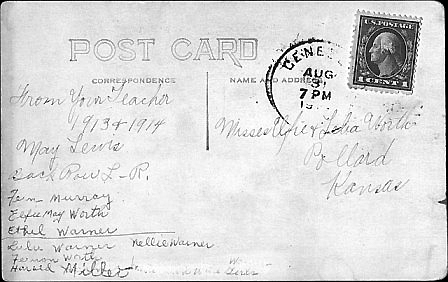 POST CARD
CORRESPONDENCE
NAME AND ADDRESS
U.S. POSTAGE
1 CENT 1
GENES
AUG
31
7 PM
19
From Your Teacher
1913 & 1914
May Lewis
Back Row L-R.
Fern Murray
Elsie May Worth
Ethel Warner
Lula Warner Nellie Warner
Vernon Worth
Harold Miller
Misses Elsie & Lelia Worth
Pollard
Kansas